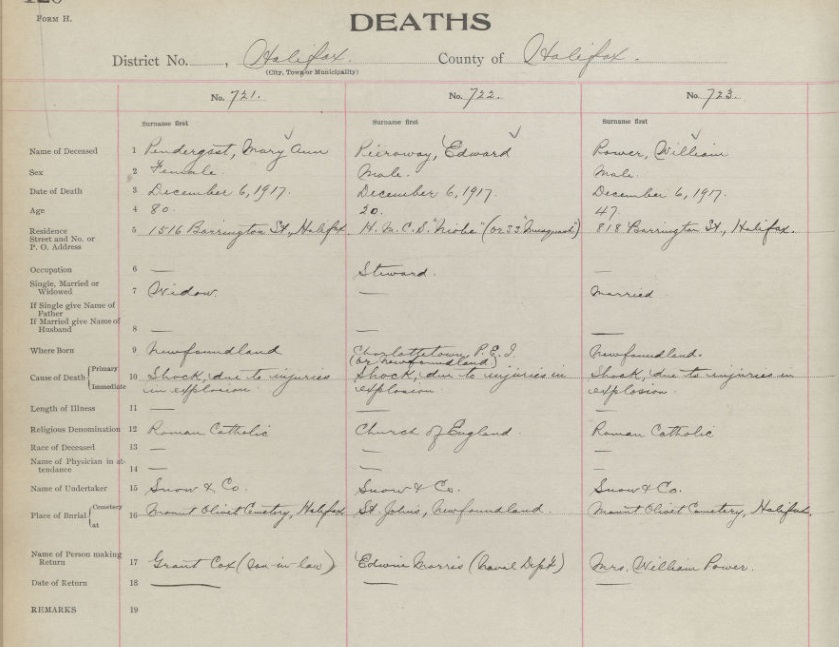 FORM H.
DEATHS
District No. , Halifax. County of Halifax.
(City, Town or Municipality)
No. 721. No. 722. No. 723.
Surname first Surname first Surname first
Name of Deceased 1 Pendergast, Mary Ann Edward Power, William
Sex 2 Female. Male. Male.
Date of Death 3 December 6, 1917. December 6, 1917. December 6, 1917.
Age 4 80. 20. 47.
Residence 5 1516 Barrington St., Halifax H.M.C.S. "Niobe" (or 33 "Musquash") 818 Barrington St., Halifax.
Street and No. or
P. O. Address
Occupation 6 — Steward. —
Single, Married or
Widowed 7 Widow. — Married
If Single give Name of
Father
If Married give Name of
Husband 8 — — —
Where Born 9 Newfoundland Charlottetown, P.E.I. Newfoundland.
(or Newfoundland)
Cause of Death { Primary Immediate 10 Shock, due to injuries Shock, due to injuries in Shock, due to injuries in
in explosion. explosion explosion.
Length of Illness 11 — — —
Religious Denomination 12 Roman Catholic Church of England. Roman Catholic
Race of Deceased 13 — — —
Name of Physician in at-
tendance 14 — — —
Name of Undertaker 15 Snow & Co. Snow & Co. Snow & Co.
Place of Burial { Cemetery at 16 Mount Olivet Cemetery, Halifax St. Johns, Newfoundland. Mount Olivet Cemetery, Halifax.
Name of Person making
Return 17 Grant Cox (son-in-law) Edwin Morris (Naval Dept) Mrs. William Power.
Date of Return 18 — — —
REMARKS 19